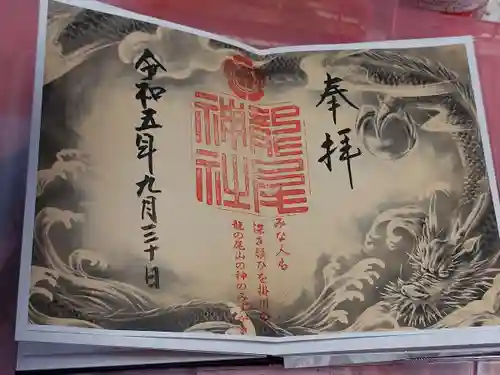 奉拝
龍尾
神社
みな人も
深き願ひを掛川の
龍の尾山の神のみ
令和五年九月三十日